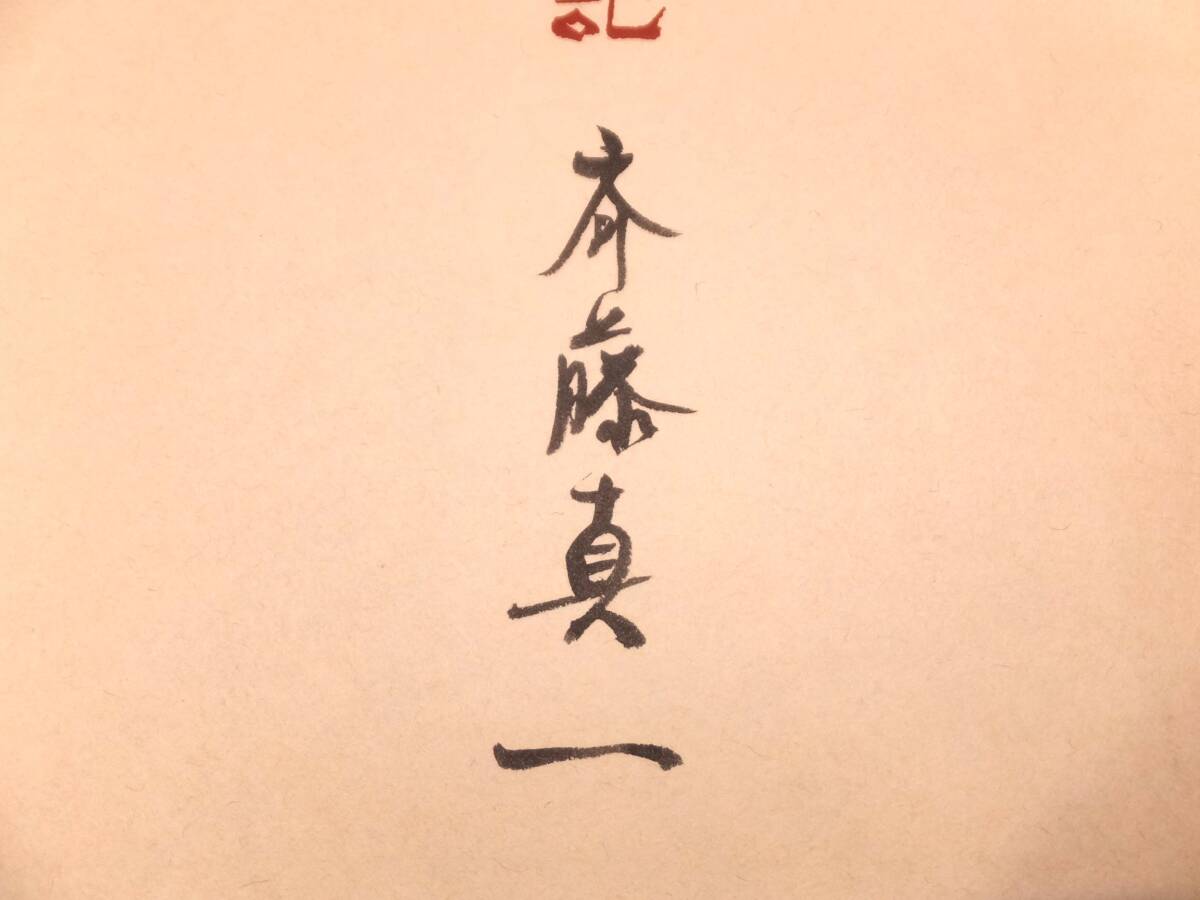 斉藤真一